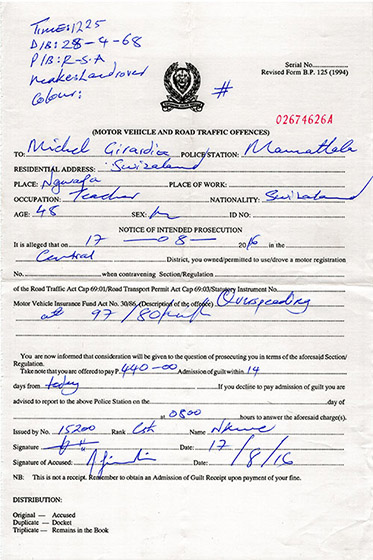 TIME: 1225
D/B: 28-4-68
P/B: R-S-A
Make: Landrover
Colour:
#
Serial No
Revised Form B.P. 125 (1994)
02674626A
(MOTOR VEHICLE AND ROAD TRAFFIC OFFENCES)
TO: Michel Girardin POLICE STATION: Mamathela
RESIDENTIAL ADDRESS: Swizaland
PLACE: PLACE OF WORK:
OCCUPATION: Teacher NATIONALITY: Swizaland
AGE: 48 SEX: M ID NO:
NOTICE OF INTENDED PROSECUTION
It is alleged that on 17 — 08 — 2016 in the
Central District, you owned/permitted to use/drove a motor registration
No. when contravening Section/Regulation
of the Road Traffic Act Cap 69:01/Road Transport Permit Act Cap 69:03/Statutory Instrument No.
Motor Vehicle Insurance Fund Act No. 30/86, (Description of the offence) Overspeeding
at 97/80km/h
You are now informed that consideration will be given to the question of prosecuting you in terms of the aforesaid Section/
Regulation.
Take note that you are offered to pay P 440-00 Admission of guilt within 14
days from today If you decline to pay admission of guilt you are
advised to report to the above Police Station on the day of
at 0800 hours to answer the aforesaid charge(s).
Issued by No. 15200 Rank Cst Name
Signature Date: 17
Signature of Accused: Date: /8/16
NB: This is not a receipt. Remember to obtain an Admission of Guilt Receipt upon payment of your fine.
DISTRIBUTION:
Original — Accused
Duplicate — Docket
Triplicate — Remains in the Book